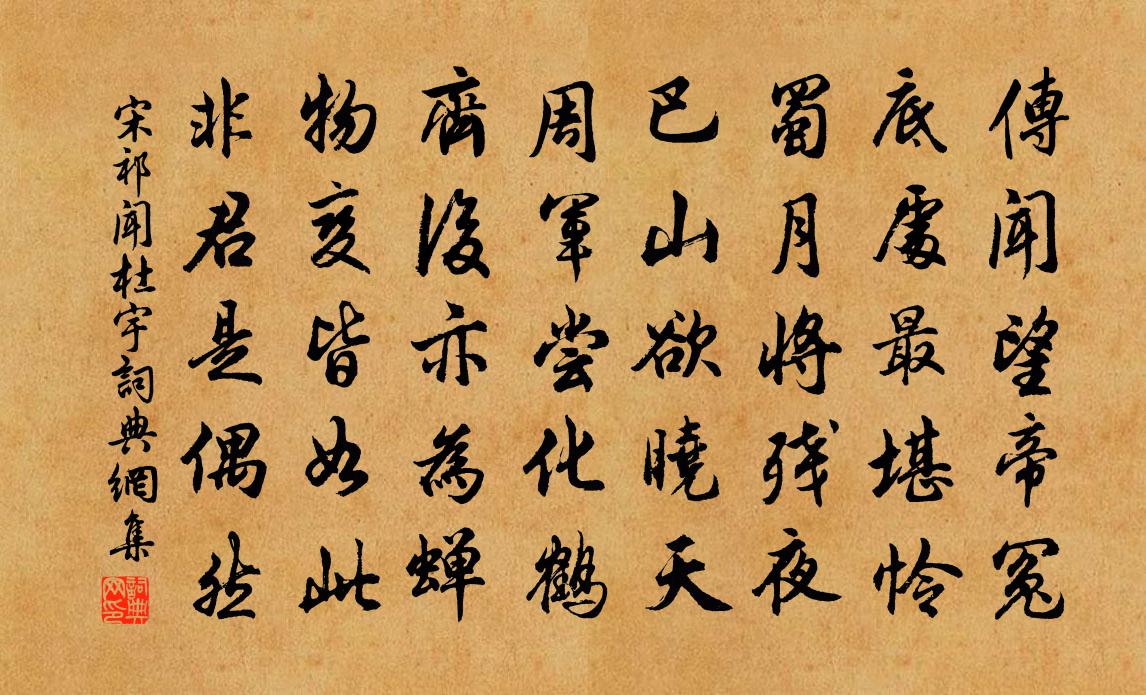 傳聞望帝冤
底處最堪怜
蜀月將残夜
巴山欲曉天
周軍嘗化鶴
齊後亦為蟬
物变皆如此
非君是偶然
宋祁聞杜宇詞典網集
詞典网印